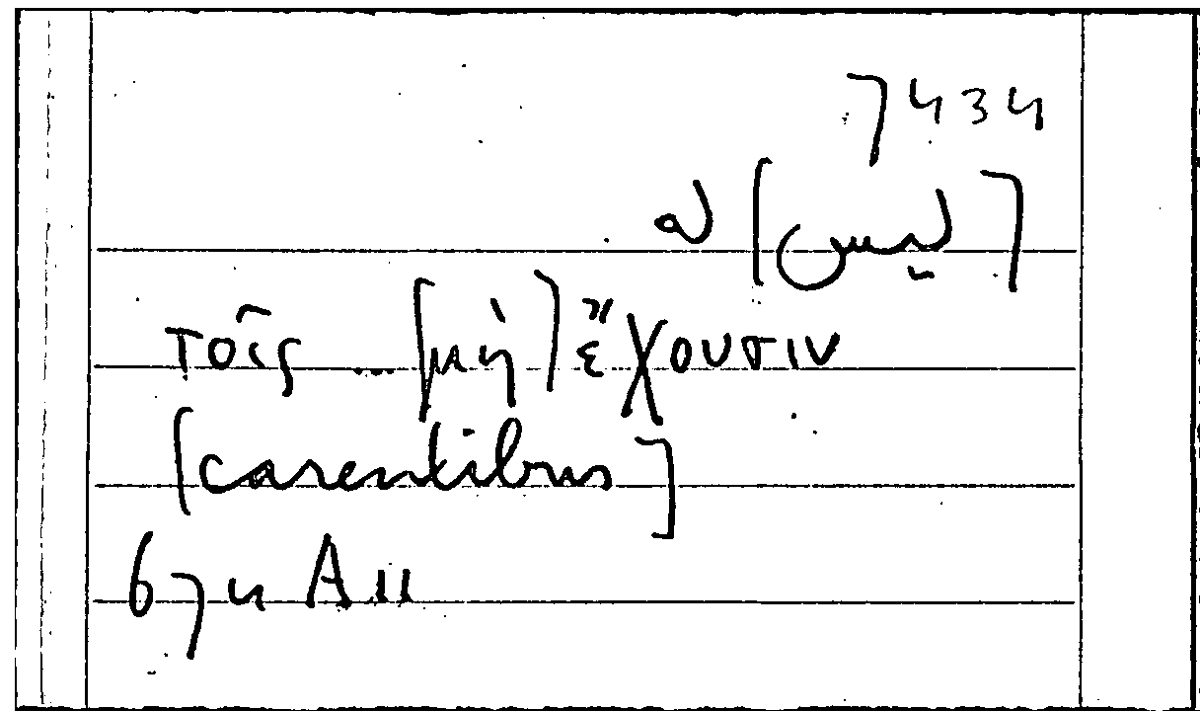 7434
[ليس] له
τοῖς ... [μὴ] ἔχουσιν
[carentibus]
674 A 11